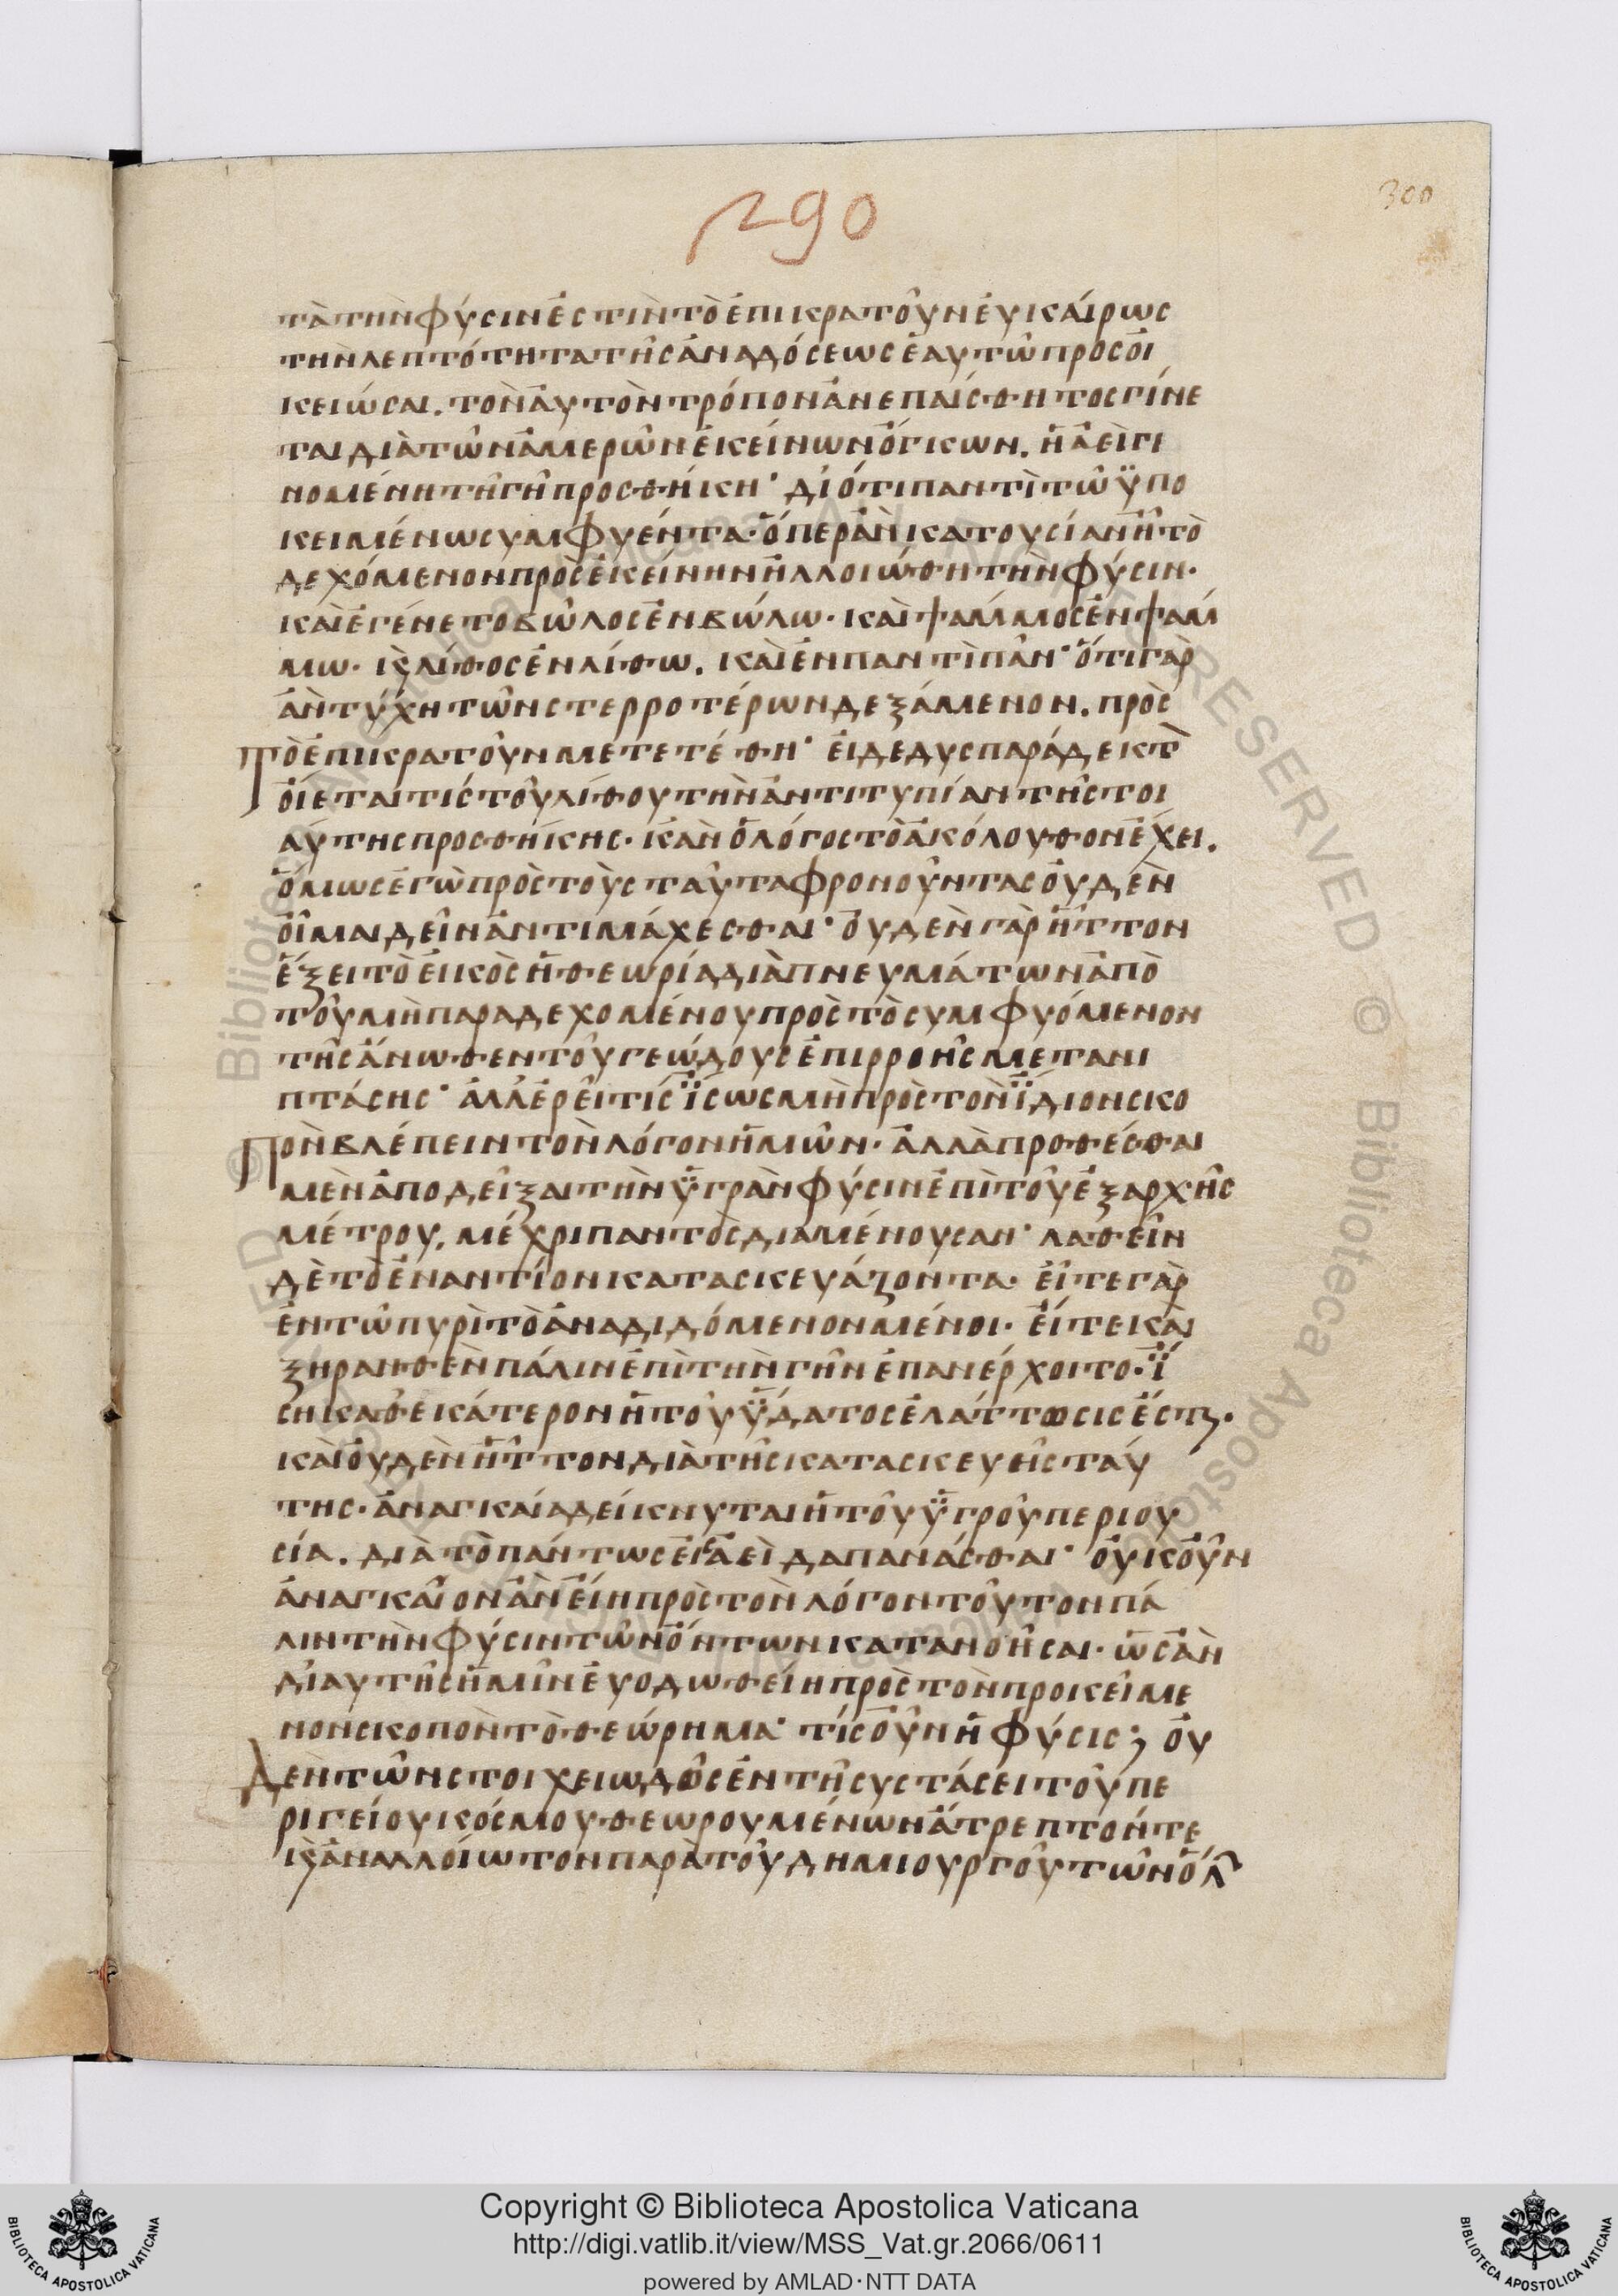 290
300
τὰ τὴν φύσιν ἐστὶν τὸ ἐπικρατοῦν ἐυκαίρως
τὴν λεπτότητα τῆς ἀναδόσεως ἑαυτῶ προσοι
κειώσαι. τὸν αὐτὸν τρόπον ἀνεπαίσθητος γίνε
ται διὰ τῶν ἀμερῶν ἐκείνων ὄγκων. ἡ ἀεὶ γι
νομένη τῆ γῆ προσθήκη· διότι παντὶ τῶ ϋπο
κειμένω συμφυέντα· ὅπερ ἂν κατουσίαν ἦ τὸ
δεχόμενον πρὸς ἐκείνην ἠλλοιώθη τὴν φύσιν·
καὶ ἐγένετο βῶλος ἐν βώλω· καὶ ψάμμος ἐν ψάμ
μω· κ̣ λίθος ἐν λίθω. καὶ ἐν παντὶ πᾶν· ὅτι γὰρ
ἂν τύχη τῶν στερροτέρων δεξάμενον. πρὸς
τὸ ἐπικρατοῦν μετετέθη· εἰ δε δυσπαράδεκτο
οἴεταί τίς τοῦ λίθου τὴν ἀντιτυπίαν τῆς τοι
αύτης προσθήκης· κἂν ὁ λόγος τὸ ἀκόλουθον ἔχει.
ὅμως ἐγὼ πρὸς τοὺς ταῦτα φρονοῦντας οὐδὲν
οἶμαι δεῖν ἀντιμάχεσθαι· οὐδὲν γὰρ ἧττον
ἕξει τὸ εἰκὸς ἡ θεωρία διὰ πνευμάτων ἀπὸ
τοῦ μὴ παραδεχομένου πρὸς τὸ συμφυόμενον
τῆς ἄνωθεν τοῦ γεώδους ἐπιρροῆς μετανι
πτάσης· ἀλλ' ἐρεῖ τίς ἴσως μὴ πρὸς τὸν ἴδιον σκο
πὸν βλέπειν τὸν λόγον ἡμῶν· ἀλλὰ προθέσθαι
μὲν ἀποδεῖξαι τὴν ὑγρὰν φύσιν ἐπὶ τοῦ ἐξαρχῆς
μέτρου, μέχρι παντὸς διαμένουσαν· λαθεῖν
δὲ τὸ ἐναντίον κατασκευάζοντα· εἴτε γὰρ
ἐν τῶ πυρὶ τὸ ἀναδιδόμενον μένοι· εἴτε καὶ
ξηρανθὲν πάλιν ἐπὶ τὴν γῆν ἐπανέρχοιτο· ἴ
ση καθεκάτερον ἡ τοῦ ὕδατος ἐλάττωσις ἐστι·
καὶ οὐδὲν ἧττον διὰ τῆς κατασκευῆς ταύ
της· ἀναγκαία δείκνυται ἡ τοῦ ὑγροῦ περιου
σία. διὰ τὸ πάντως εἰς ἀεὶ δαπανάσθαι· οὐκοῦν
ἀναγκαῖον ἂν εἴη πρὸς τὸν λόγον τοῦτον πά
λιν τὴν φύσιν τῶν ὄντων κατανοῆσαι· ὡς ἂν
δι αυτῆς ἡμῖν ἐυοδωθείη πρὸς τὸν προκείμε
νον σκοπὸν τὸ θεώρημα· τίς οὖν ἡ φύσις; οὐ
δὲν τῶν στοιχειωδῶς ἐν τῆ συστάσει τοῦ πε
ριγείου κόσμου θεωρουμένων ἄτρεπτόν τε
κ̣ ἀναλλοίωτον παρὰ τοῦ δημιουργοῦ τῶν ὅλ
Copyright © Biblioteca Apostolica Vaticana
http://digi.vatlib.it/view/MSS_Vat.gr.2066/0611
powered by AMLAD·NTT DATA